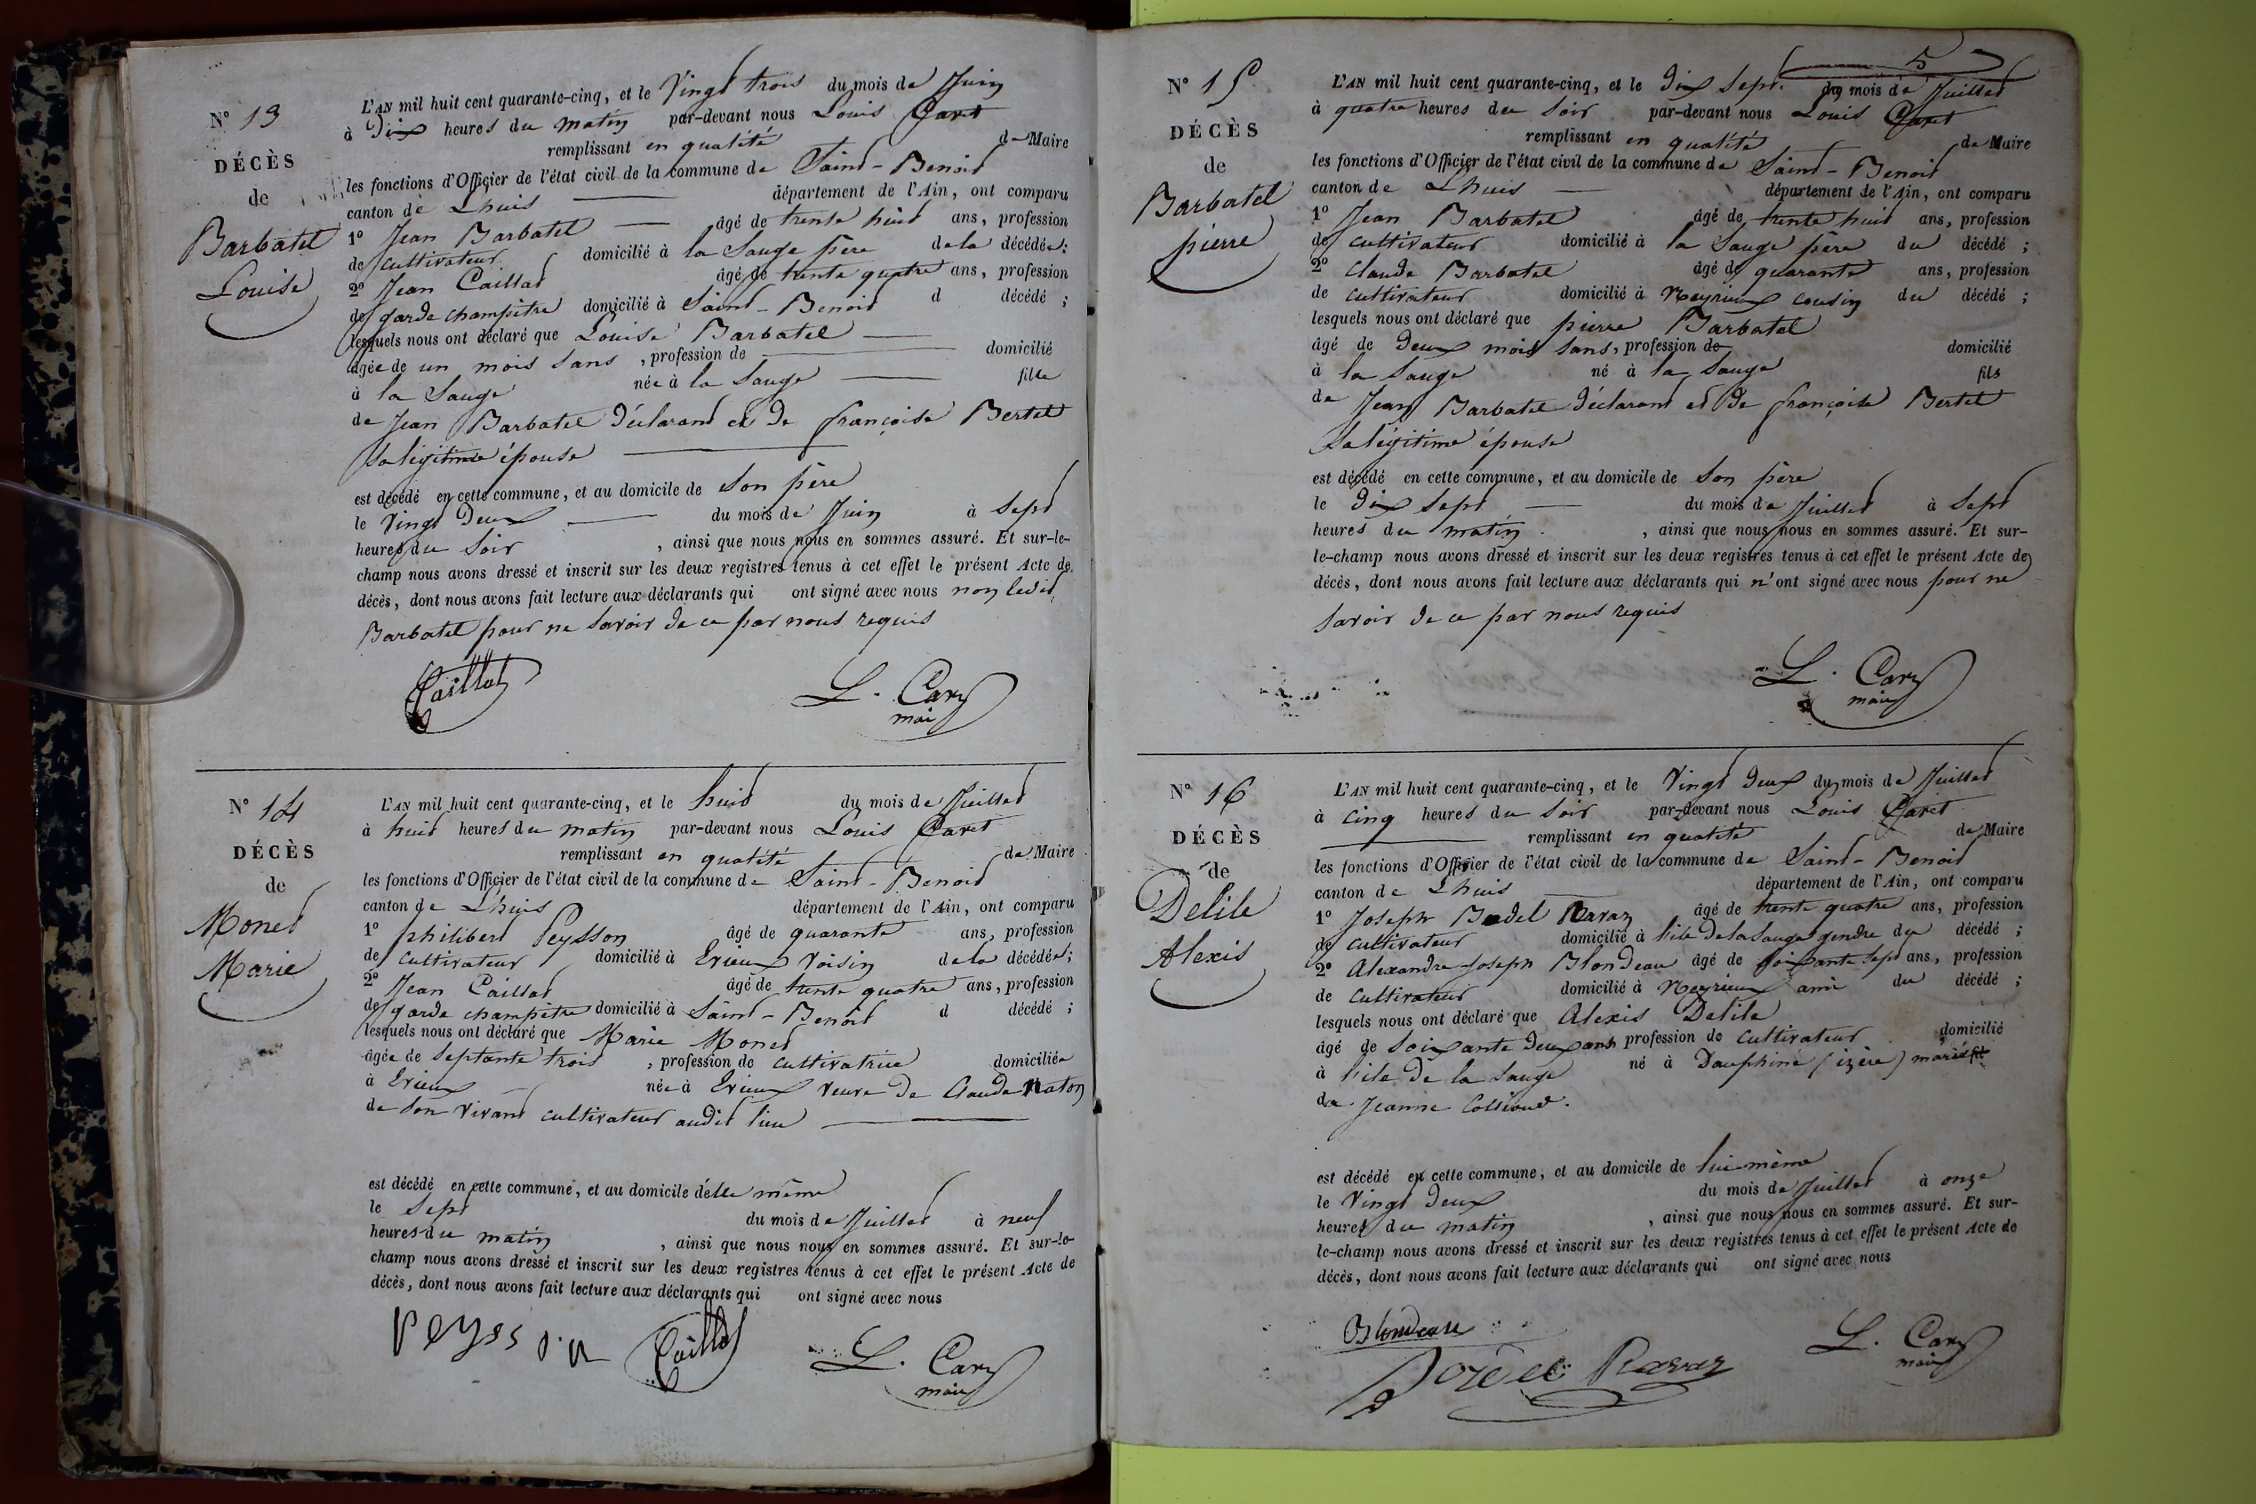 N° 13
DÉCÈS
de
Barbatel
Louise
L'AN mil huit cent quarante-cinq, et le Vingt trois du mois de Juin
à Dix heures du matin par-devant nous Louis Caret
remplissant en qualité de Maire
les fonctions d'Officier de l'état civil de la commune de Saint-Benoit
canton de Lhuis département de l'Ain, ont comparu
1° Jean Barbatel âgé de trente huit ans, profession
de cultivateur domicilié à la Sauge père de la décédée;
2° Jean Caillat âgé de trente quatre ans, profession
de garde champêtre domicilié à Saint-Benoit d décédé;
lesquels nous ont déclaré que Louise Barbatel
âgée de un mois sans, profession de domicilié
à la Sauge née à la Sauge fille
de Jean Barbatel déclarant et de françoise Bertet
sa légitime épouse
est décédé en cette commune, et au domicile de son père
le Vingt Deux du mois de Juin à Sept
heures du Soir, ainsi que nous nous en sommes assuré. Et sur-le-
champ nous avons dressé et inscrit sur les deux registres tenus à cet effet le présent Acte de
décès, dont nous avons fait lecture aux déclarants qui ont signé avec nous non ledit
Barbatel pour ne savoir de ce par nous requis
Caillat
L. Caret
maire
N° 14
DÉCÈS
de
Monet
Marie
L'AN mil huit cent quarante-cinq, et le huit du mois de Juillet
à huit heures du matin par-devant nous Louis Caret
remplissant en qualité de Maire
les fonctions d'Officier de l'état civil de la commune de Saint-Benoit
canton de Lhuis département de l'Ain, ont comparu
1° philibert Peysson âgé de quarante ans, profession
de cultivateur domicilié à Evieux voisin de la décédée;
2° Jean Caillat âgé de trente quatre ans, profession
de garde champêtre domicilié à Saint-Benoit d décédé;
lesquels nous ont déclaré que Marie Monet
âgée de Septante trois, profession de cultivatrice domiciliée
à Evieux née à Evieux veuve de Claude
de son vivant cultivateur audit lieu
est décédé en cette commune, et au domicile d'elle même
le Sept du mois de Juillet à neuf
heures du matin, ainsi que nous nous en sommes assuré. Et sur-le-
champ nous avons dressé et inscrit sur les deux registres tenus à cet effet le présent Acte de
décès, dont nous avons fait lecture aux déclarants qui ont signé avec nous
Peysson Caillat
L. Caret
maire
5
N° 15
DÉCÈS
de
Barbatel
pierre
L'AN mil huit cent quarante-cinq, et le Dix Sept du mois de Juillet
à quatre heures du Soir par-devant nous Louis Caret
remplissant en qualité de Maire
les fonctions d'Officier de l'état civil de la commune de Saint-Benoit
canton de Lhuis département de l'Ain, ont comparu
1° Jean Barbatel âgé de trente huit ans, profession
de cultivateur domicilié à la Sauge père du décédé;
2° Claude Barbatel âgé de quarante ans, profession
de cultivateur domicilié à Meyrieux cousin du décédé;
lesquels nous ont déclaré que pierre Barbatel
âgé de Deux mois sans, profession de domicilié
à la Sauge né à la Sauge fils
de Jean Barbatel déclarant et de françoise Bertet
sa légitime épouse
est décédé en cette commune, et au domicile de son père
le Dix Sept du mois de Juillet à Sept
heures du matin, ainsi que nous nous en sommes assuré. Et sur-
le-champ nous avons dressé et inscrit sur les deux registres tenus à cet effet le présent Acte de
décès, dont nous avons fait lecture aux déclarants qui n'ont signé avec nous pour ne
savoir de ce par nous requis
L. Caret
maire
N° 16
DÉCÈS
de
Delile
Alexis
L'AN mil huit cent quarante-cinq, et le Vingt Deux du mois de Juillet
à cinq heures du Soir par-devant nous Louis Caret
remplissant en qualité de Maire
les fonctions d'Officier de l'état civil de la commune de Saint-Benoit
canton de Lhuis département de l'Ain, ont comparu
1° Joseph Ravaz âgé de trente quatre ans, profession
de cultivateur domicilié à l'ile de la Sauge gendre du décédé;
2° Alexandre Joseph Blondeau âgé de Soixante sept ans, profession
de cultivateur domicilié à Meyrieux ami du décédé;
lesquels nous ont déclaré que Alexis Delile
âgé de Soixante Deux ans profession de cultivateur domicilié
à l'ile de la Sauge né à Dauphiné (izère) marié
de Jeanne
est décédé en cette commune, et au domicile de lui même
le Vingt Deux du mois de Juillet à onze
heures du matin, ainsi que nous nous en sommes assuré. Et sur-
le-champ nous avons dressé et inscrit sur les deux registres tenus à cet effet le présent Acte de
décès, dont nous avons fait lecture aux déclarants qui ont signé avec nous
Blondeau
L. Caret
maire
Ravaz